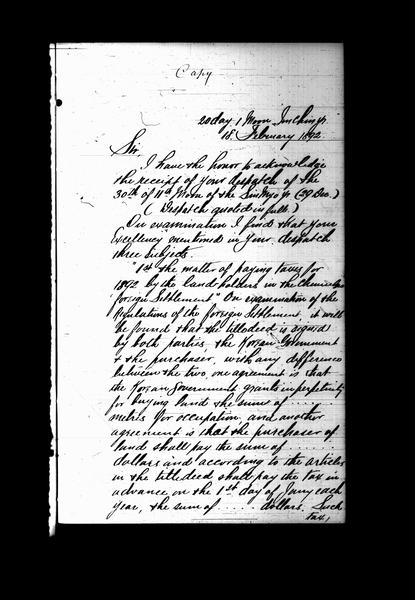 Copy
20 day, 1 Moon, Im Chin Yr.
18, February 1892.
Sir,
I have the honor to acknowledge
the receipt of your despatch of the
30th of 11th Moon of the Sin Myo Yr (29 Dec.)
(Despatch quoted in full.)
On examination I find that your
Excellency mentioned in your despatch
three subjects.
"1st the matter of paying taxes for
1892 by the land holders in the Chemulpo
"foreign Settlement" On examination of the
Regulations of the foreign Settlement, it will
be found that the titledeed is signed
by both parties, the Korean Government
& the purchaser, with any difference
between the two, one agreement is that
the Korean Government grants in perpetuity
for buying land & the sum of . . . . . .
metres for occupation, and another
agreement is that the purchaser of
land shall pay the sum of . . . . . .
dollars and according to the articles
in the titledeed shall pay the tax in
advance on the 1st day of Jany each
year, & the sum of . . . . dollars. Such
tax,